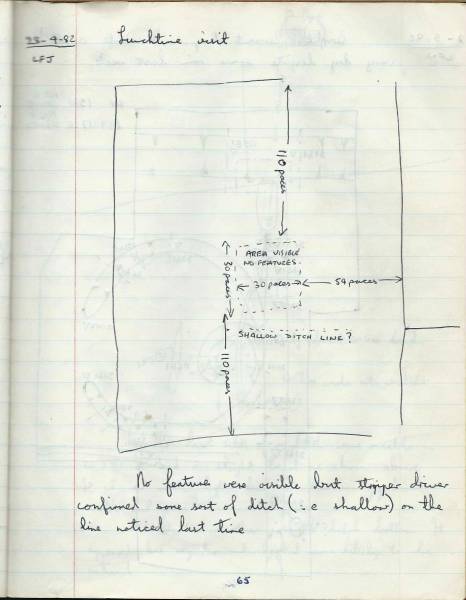 23-9-82
LFJ
Lunchtime visit
110 paces
AREA VISIBLE
NO FEATURES
30 paces
30 paces
54 paces
SHALLOW DITCH LINE?
110 paces
No features were visible but stripper driver
confirmed some sort of ditch (i.e shallow) on the
line noticed last time
65